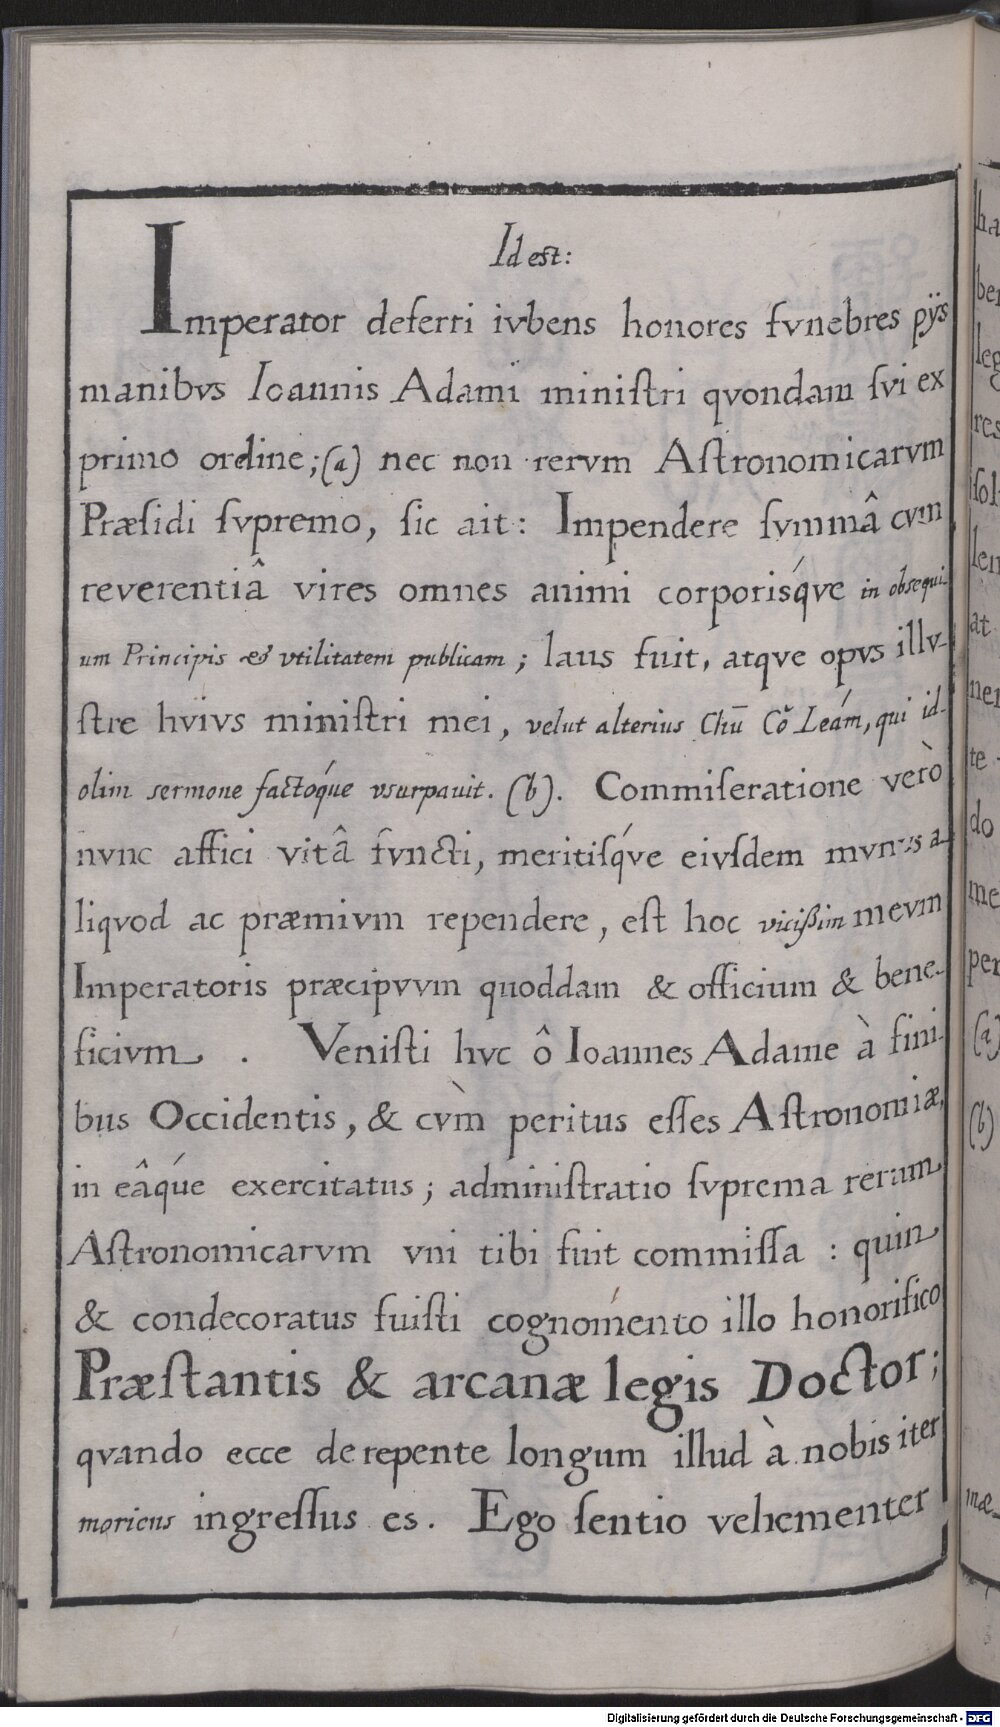 Id est:
Imperator deferri ivbens honores fvnebres pÿs
manibvs Ioannis Adami miniſtri qvondam ſvi ex
primo ordine; (a) nec non rervm Aſtronomicarvm
Præſidi ſvpremo, ſic ait: Impendere ſvmmâ cvm
reverentiâ vires omnes animi corporisq́ve in obsequi-
um Principis & vtilitatem publicam; laus fuit, atqve opvs illv-
ſtre hvivs miniſtri mei, velut alterius Chū Cǒ Leám, qui id-
olim sermone factoq́ue vsurpauit. (b). Commiſeratione verò
nvnc affici vitâ fvncti, meritiſq́ve eivſdem mvnvs a-
liqvod ac præmivm rependere, eſt hoc viciſſim mevm
Imperatoris præcipvvm quoddam & officium & bene-
ficivm. Veniſti hvc ô Ioannes Adame à fini-
bus Occidentis, & cv̀m peritus eſſes Aſtronomiæ,
in eâq́ué exercitatus; adminiſtratio ſvprema rerum
Aſtronomicarvm vni tibi fuit commiſſa: quin
& condecoratus fuiſti cognoménto illo honorifico
Præſtantis & arcanæ legis Doctor;
qvando ecce derepente longum illud à nobis iter
moriens ingreſſus es. Ego ſentio vehementer
ha
ber
leg
res
ſol
len
at
ner
te
do
me
per
(a)
(b)
mæ
Digitalisierung gefördert durch die Deutsche Forschungsgemeinschaft - DFG